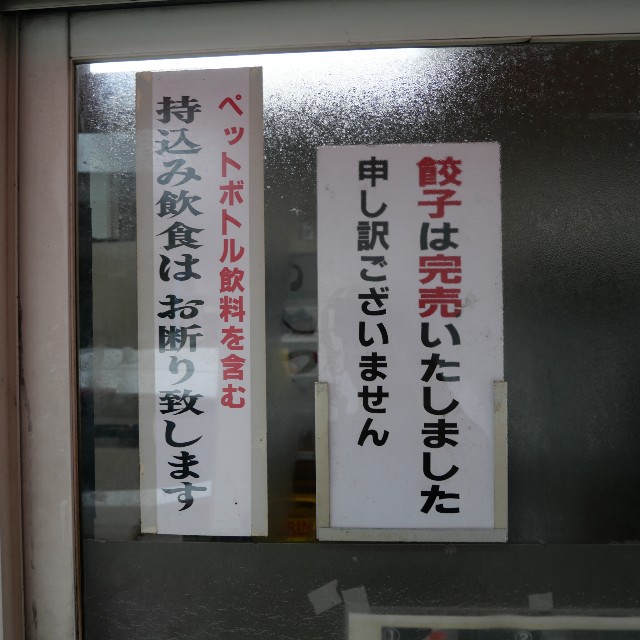 餃子は完売いたしました
申し訳ございません
ペットボトル飲料を含む
持込み飲食はお断り致します